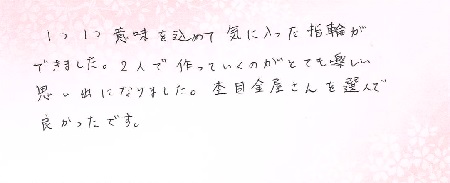 1つ1つ意味を込めて気に入った指輪が
できました。2人で作っていくのがとても楽しい
思い出になりました。杢目金屋さんを選んで
良かったです。